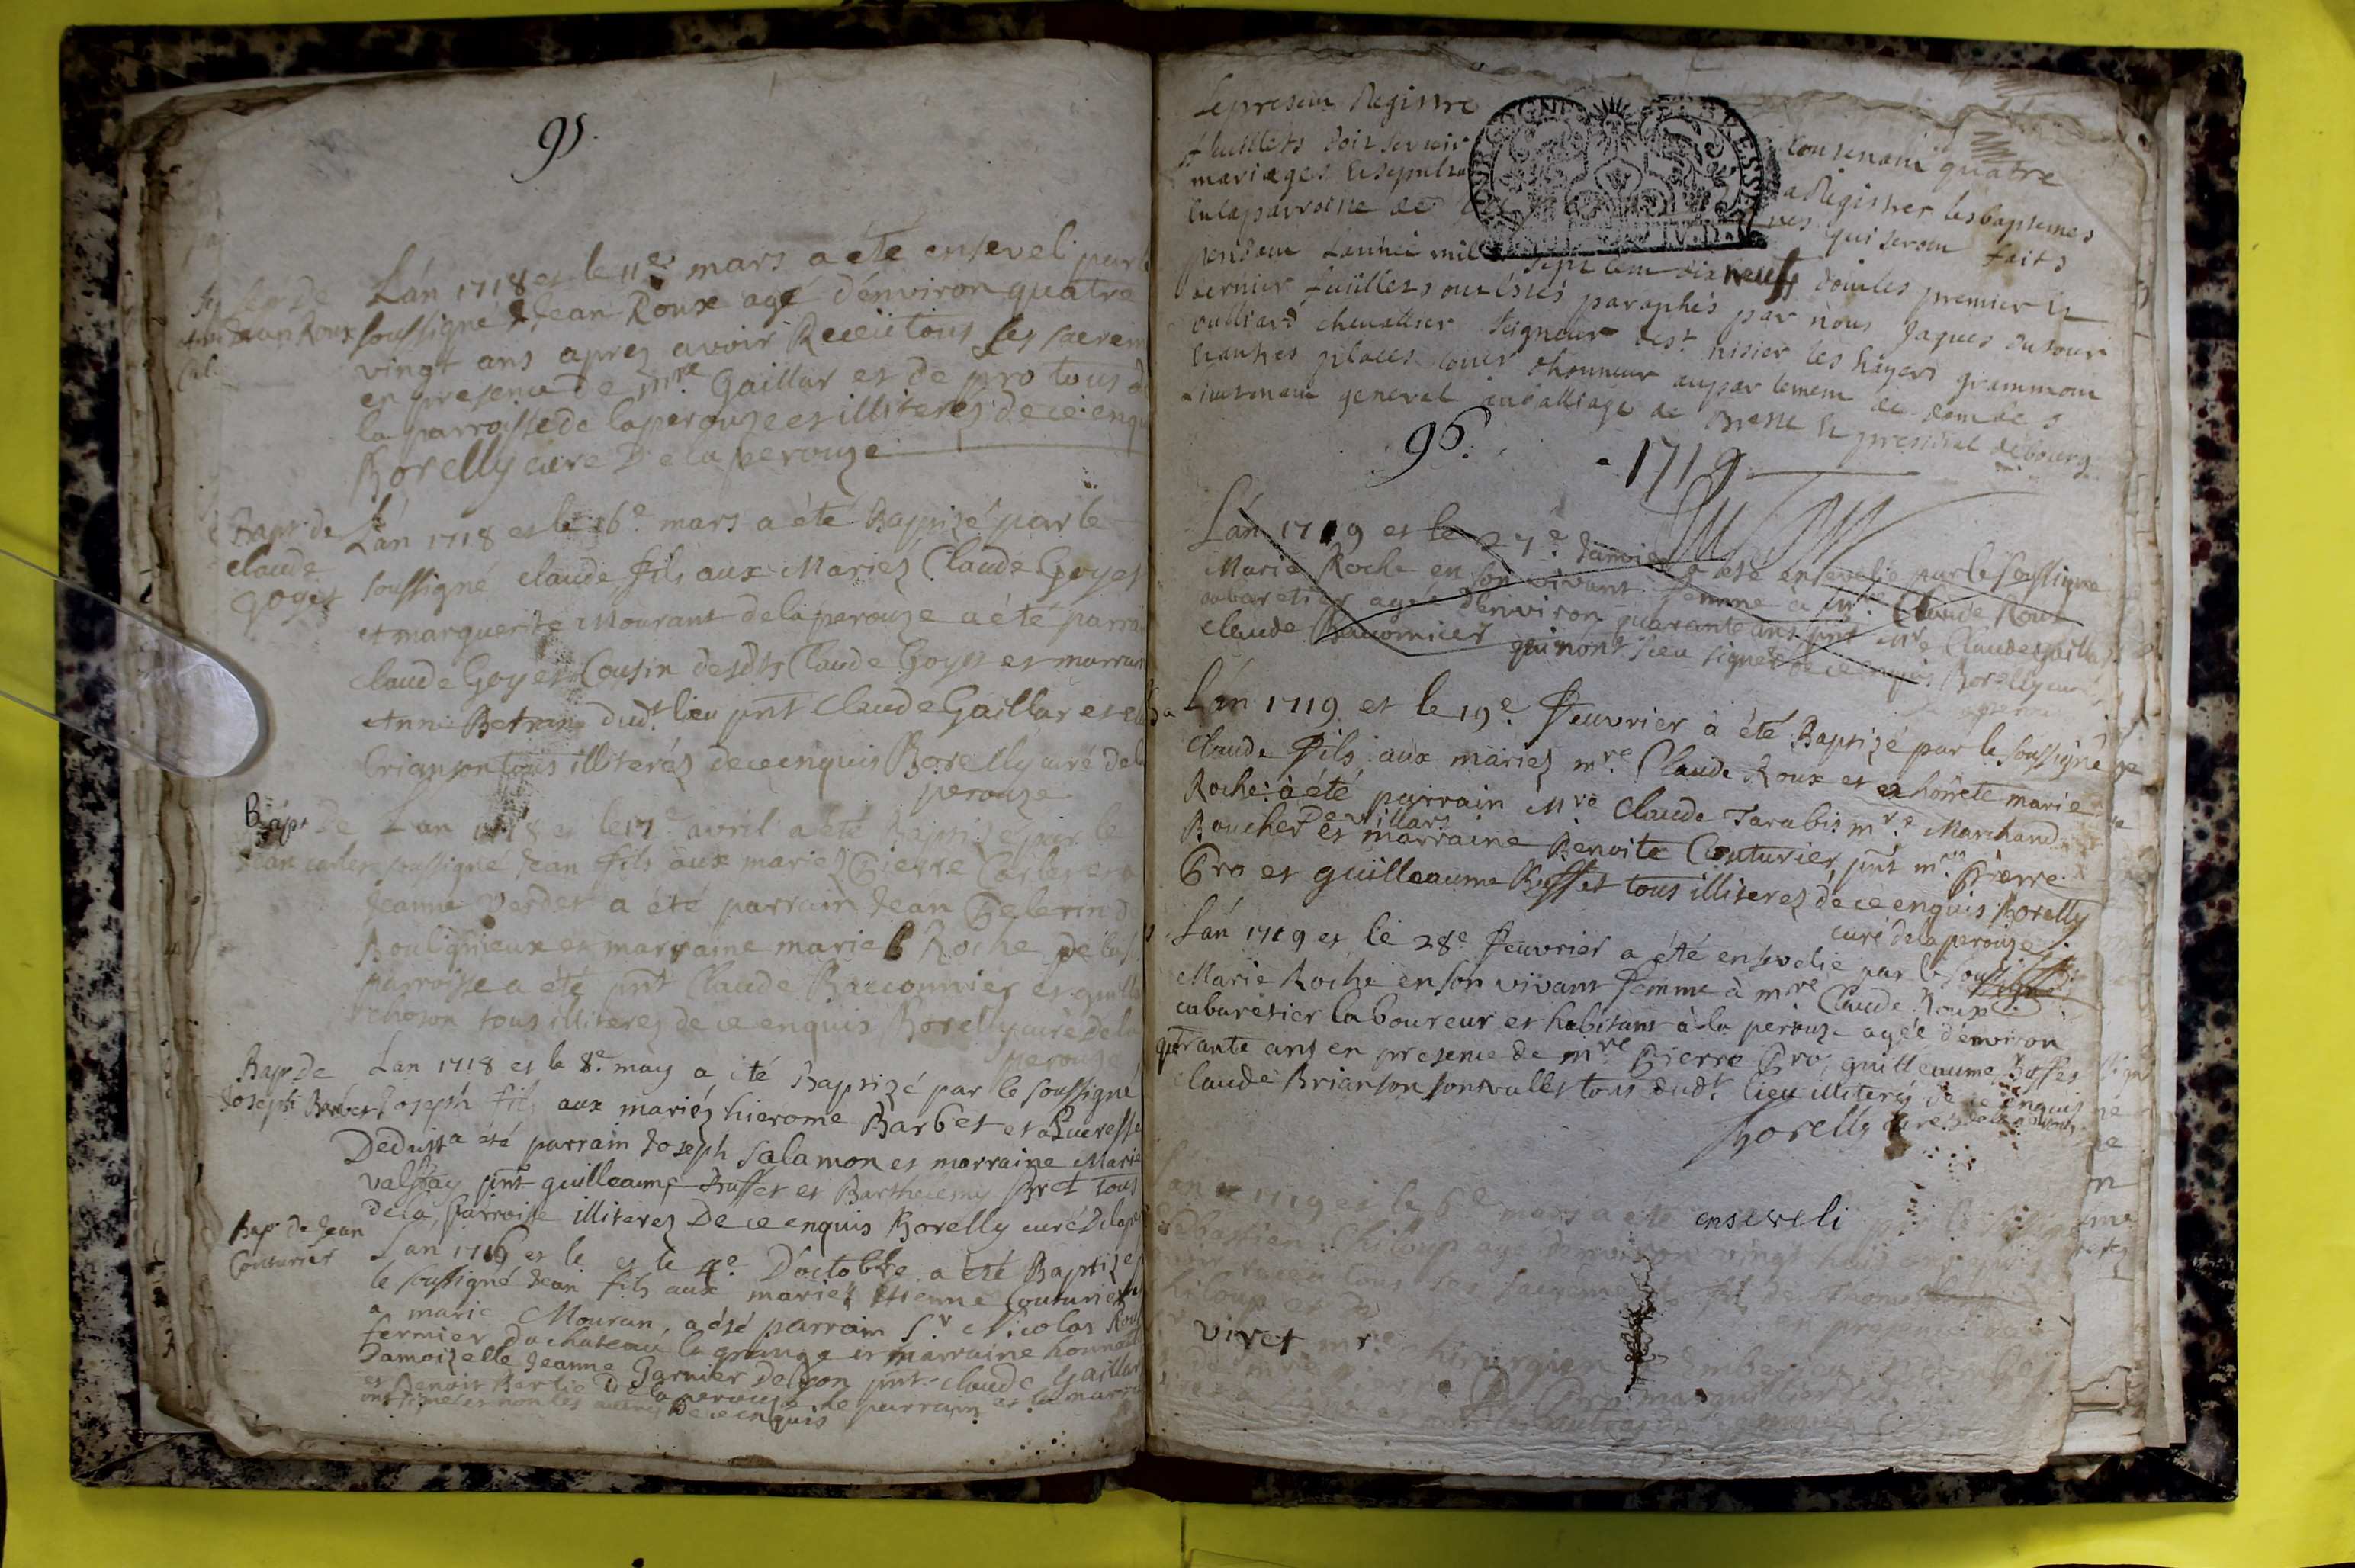 95.
Sep. de
Jean Roux
L'an 1718 et le 11e mars a été ensevel par l
soussigné Jean Roux agé d'environ quatre
vingt ans aprez avoir Receü tous ses sacrem
en presence de mre Gaillar et de pro tous d
la parroisse de laperouze et illiterez de ce enqu
Borelly curé De la perouze
Bapt de
claude
goyet
L'an 1718 et le 16e mars a été Baptizé par le
soussigné claude fils aux Mariez Claude Goyet
et marguerite Mourant de la perouze a été parra
claude Goyet Cousin desdts Claude Goyet et marrain
Anne Betran dudt lieu pnt Claude Gaillar et cla
brianson tous illiteréz de ce enquis Borelly curé de l
perouze
Bapt de
Jean carles
Lan 1718 et le 17e avril a été Baptizé par le
soussigné Jean fils aux mariez Pierre Carles et a
Jeanne Verdet a été parrain Jean Pelerin d
Bouligneux et marraine marie Roche de lad
parroisse a été pnt Claude Baconnier et guill
choson tous illiterez de ce enquis Borelly curé de la
perouze
Bap. de
Joseph Barbet
Lan 1718 et le 8e may a été Baptizé par le soussigné
Joseph fils aux mariéz hierome Barbet et a Lucresse
Deduit a été parrain Joseph Salamon et marraine Marie
valfray pnt guilleaume Buffet et Barthelemy pret tous
de la Parroisse illiterez De ce enquis Borelly curé De la pe
Bap. de Jean
Couturier
Lan 1716 et le et le 4e D'octobre a été Baptizé
le soussigné Jean fils aux mariez Etienne Couturier
a marie Mouran, a été parrain Sr Nicolas Rou
fermier du chateau la grange et marraine honnete
Damoizelle Jeanne Garnier de lyon pnt. claude Gaillar
et Benoit Berlie De la perouze le parrain et la marra
ont signé et non les autres De ce enquis
Le present Registre contenant quatre
feuillets doit servir a Registrer les baptemes
mariages et sepultures qui seront faits
en la parroisse de
pendant l'année mil sept cent dix neuf dont les premier et
dernier feuillets ont estés paraphés par nous Jaques dutour
vulliard chevallier seigneur de st nisier les hayers grammont
et autres places coner d'honneur au parlement de dombes
Lieutenant general au balliage de Bresse et presidial de bourg
96. 1719
L'an 1719 et le 27e Janvier a été ensevelie par le soussigné
Marie Roche en son vivant femme à mre Claude Roux
cabaretier agée d'environ quarante ans pnt Mre Claude gaillar
claude Baconnier qui n'ont sceu signer de ce enquis Borelly curé
L'an 1719 et le 19e Feuvrier à été Baptizé par le soussigné
Claude Fils aux mariez mre Claude Roux et a hônete marie
Roche à été parrain Mre Claude Tarabis mre Marchand
Boucher De villars et marraine Benoite Couturier, pnt mre Pierre
Pro et guilleaume Buffet tous illiterez de ce enquis Borelly
curé de la perouze
L'an 1719 et le 28e Feuvrier a été ensevelie par le soussigné
Marie Roche en son vivant femme à mre Claude Roux
cabaretier laboureur et habitant à la perouze agée d'environ
quarante ans en presence de mre Pierre Pro, guilleaume Buffet
claude Brianson son vallet tous dudt lieu illiterés de ce enquis
Borelly curé de la perouze
Lan 1719 et le 6e mars a été enseveli par le soussigné
Sebastien Chiloup agé d'environ vingt huit ans
receu tous ses sacrements fils de Thomas
chiloup et de
viret mre chirurgien